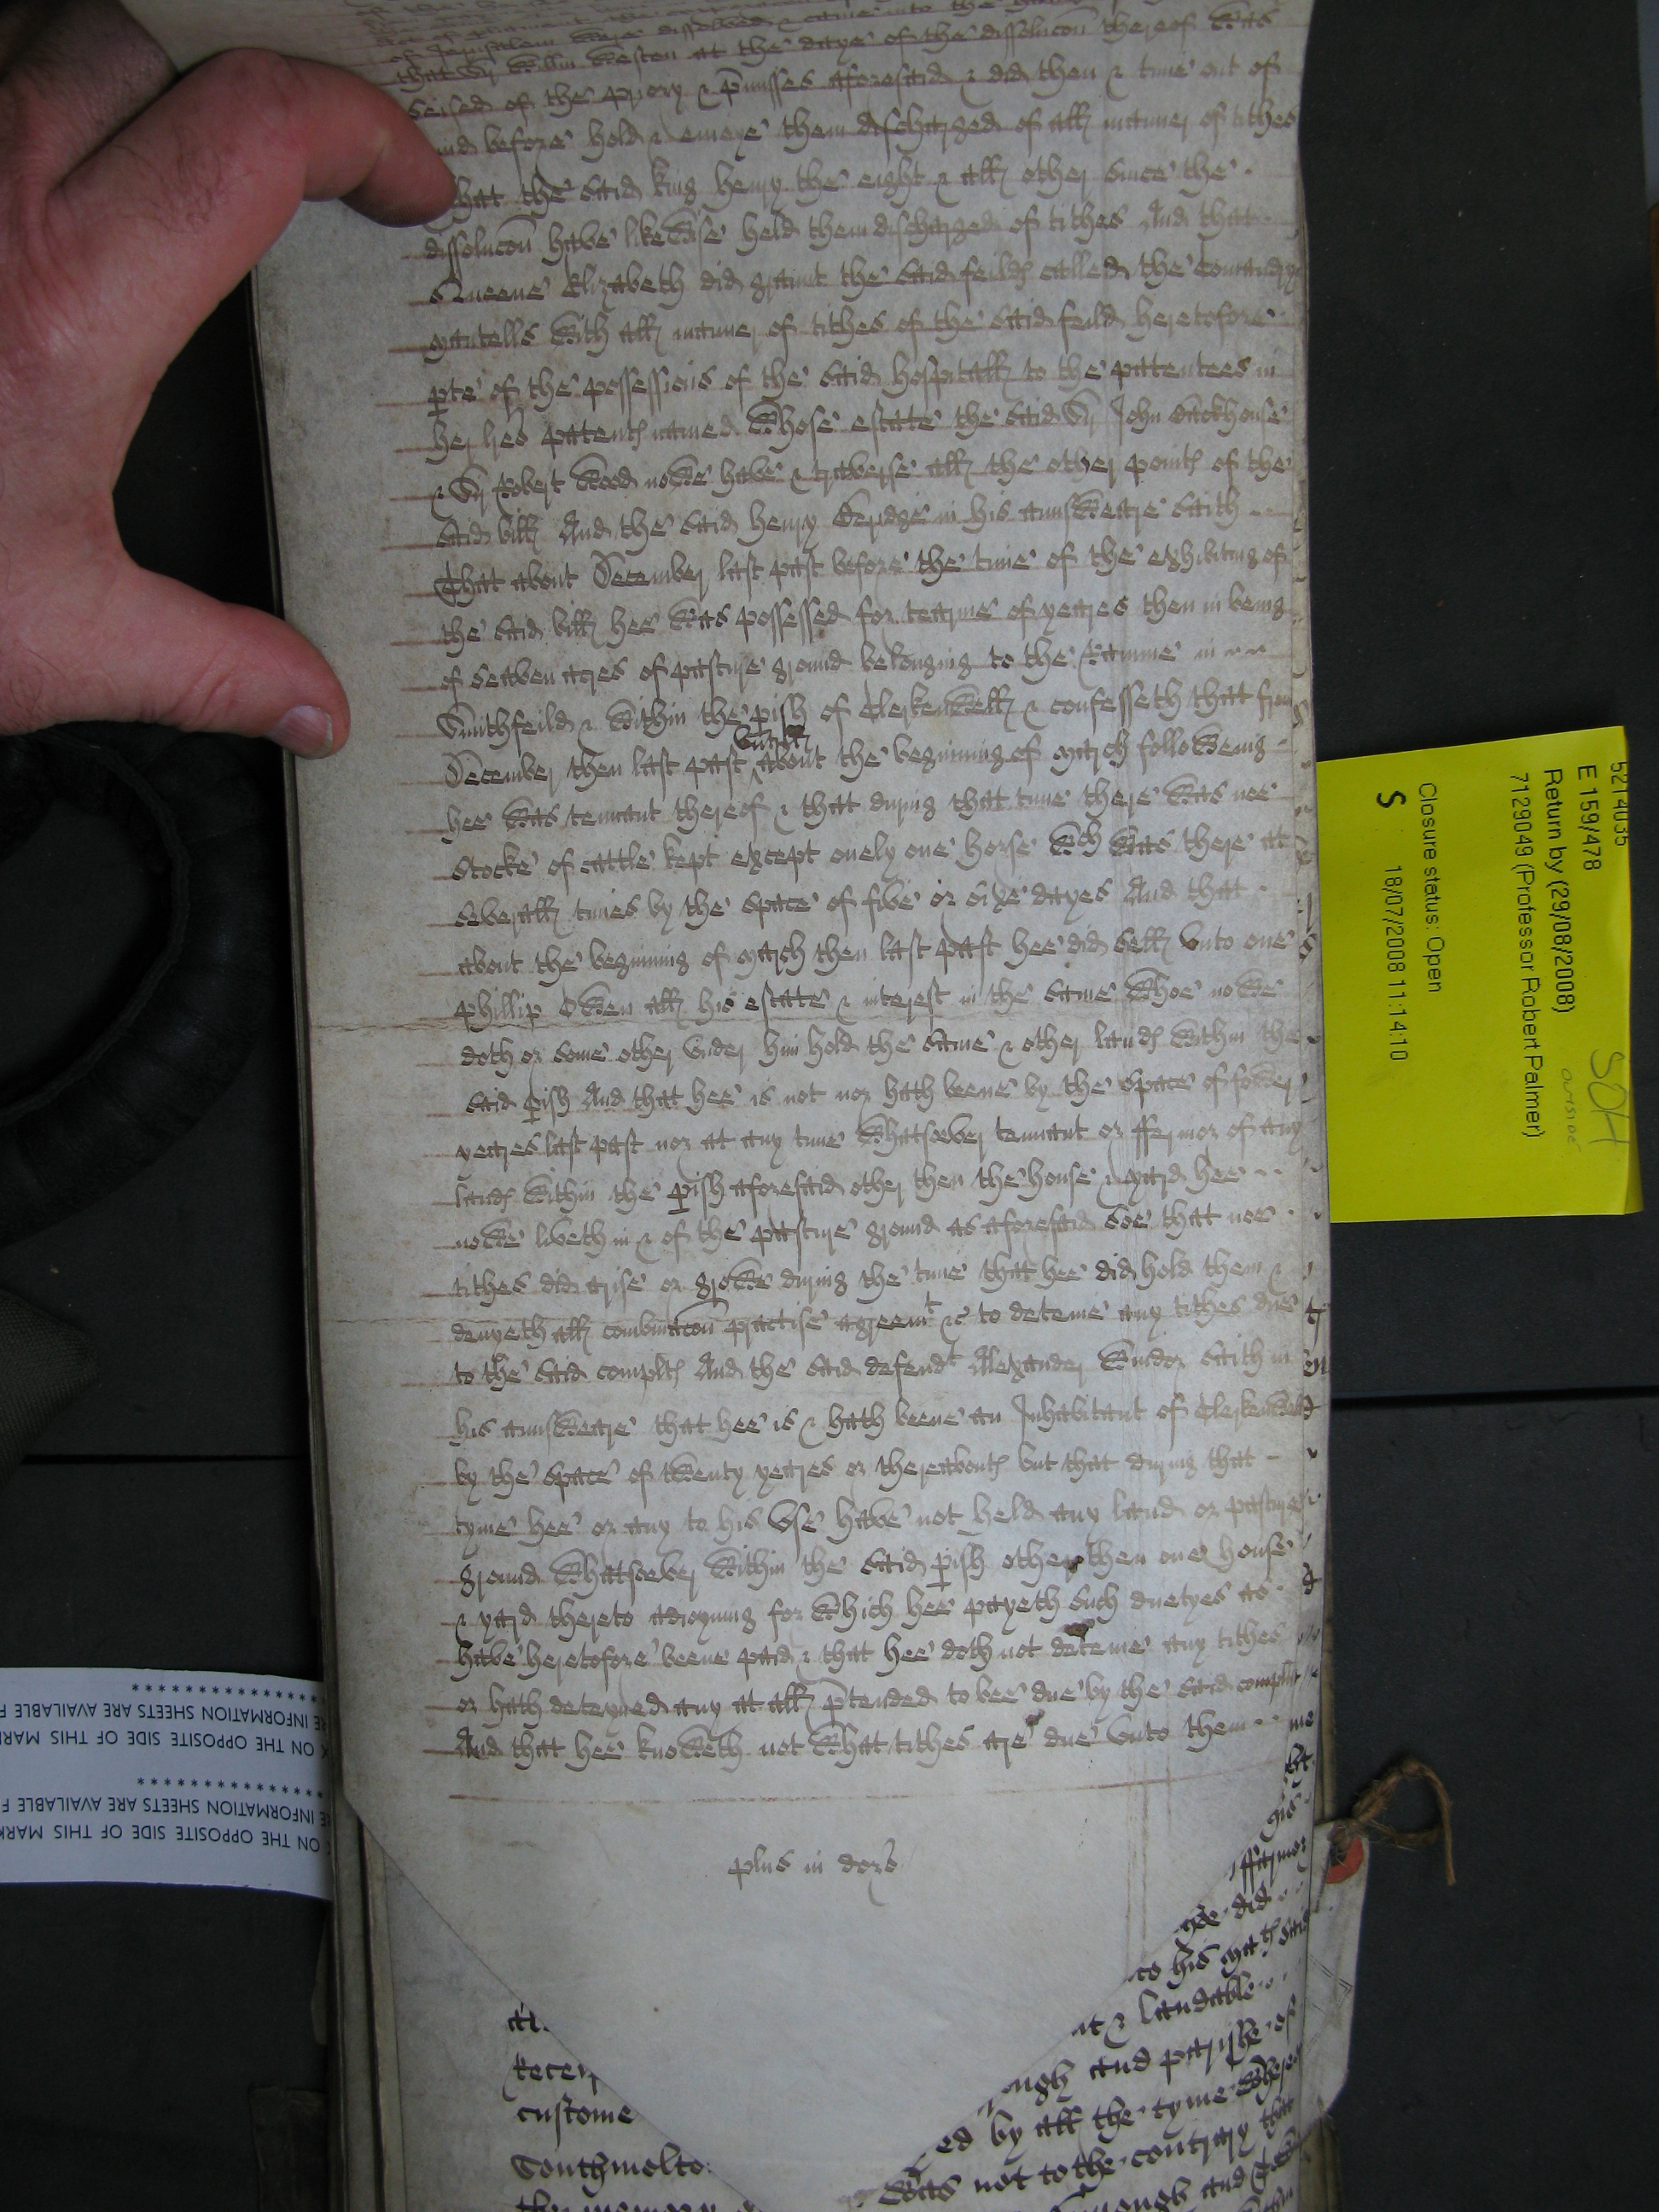 of Jerusalem were dissolved & came into the
that Sr Willm Weston at the daye of the dissolucon thereof was
seised of the priory & pmisses aforesaid & did then & time out of
mind before hold & enioye them discharged of all manner of tithes
that the said king henry the eight & all other since the
dissolucon have likewise held them discharged of tithes And that
Queene Elizabeth did graunt the said feild called the Comandry
mantells with all manner of tithes of the said feild heretofore
pte of the possessions of the said hospitall to the pattentees in
her lres patents named whose estate the said Sr John Backhouse
& Sr Robert Wood nowe have & traverse all the other points of the
said bill And the said henry in his aunsweare saith
That about December last past before the time of the exhibiting of
the said bill hee was possessed for tearme of yeares then in being
of seaven acres of pasture ground belonging to the Ramme in
Smithfeild & within the pish of Clerkenwell & confesseth that from
December then last past untill about the beginning of march followeing
hee was tennant thereof & that during that time there was noe
stocke of cattle kept except onely one horse wch was there at
severall times by the space of five or sixe dayes And that
about the beginning of march then last past hee did sell unto one
phillip Owen all his estate & interest in the same whoe nowe
doth or some other under him hold the same & other lands within the
said pish And that hee is not nor hath beene by the space of fower
yeares last past nor at any time whatsoever tennant or ffermor of any
lands within the pish aforesaid other then the house & yard hee
nowe liveth in & of the pasture ground as aforesaid soe that noe
tithes did arise or growe during the time that hee did hold them &
denyeth all combinacon practise agreemt &c to deteine any tithes due
to the said complts And the said defendt Alexander saith in
his aunsweare that hee is & hath beene an Inhabitant of Clerkenwell
by the space of twenty yeares or thereabouts but that during that
tyme hee or any to his use have not held any land or pasture
ground whatsoever within the said pish other then one house
& yard thereto adioyning for which hee payeth such duetyes as
have heretofore beene paid & that hee doth not deteine any tithes
or hath deteyned any at all ptended to bee due by the said complts
And that hee knoweth not what tithes are due unto them
plus in dors
ffarmor
did
to his mats said
& laudable
custome
and parishe of
ed by all the tyme whereof
Southmolto
was not to the contrary that
5214035
E 159/478
Return by (29/08/2008)
7129049 (Professor Robert Palmer)
Closure status: Open
S 18/07/2008 11:14:10
ON THE OPPOSITE SIDE OF THIS MARK
INFORMATION SHEETS ARE AVAILABLE F
****************
ON THE OPPOSITE SIDE OF THIS MARK
INFORMATION SHEETS ARE AVAILABLE F
****************